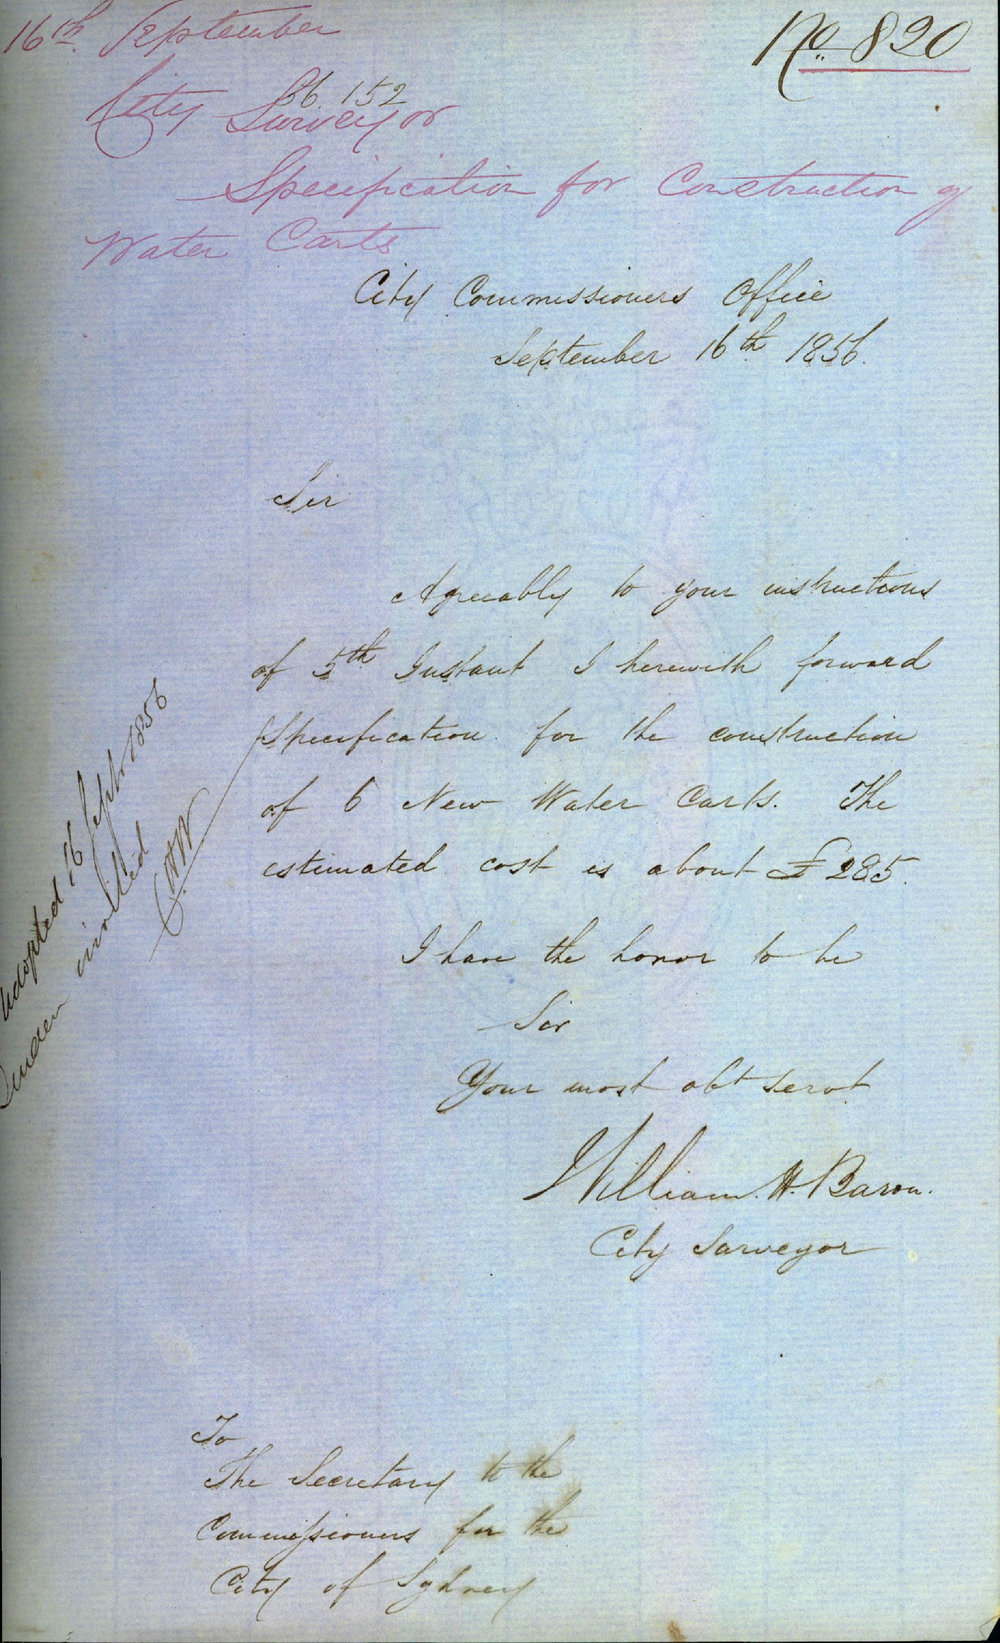 16th September
No. 820
56.152
City Surveyor
Specification for Construction of
Water Carts
City Commissioners Office
September 16th 1856.
Sir
Agreeably to your instructions
of 5th Instant I herewith forward
Specification for the construction
of 6 New Water Carts. The
estimated cost is about £285.
I have the honor to be
Sir
Your most obt servt
William. H. Baron.
City Surveyor
To
The Secretary to the
Commissioners for the
City of Sydney
Adopted 16 Septr 1856
invited